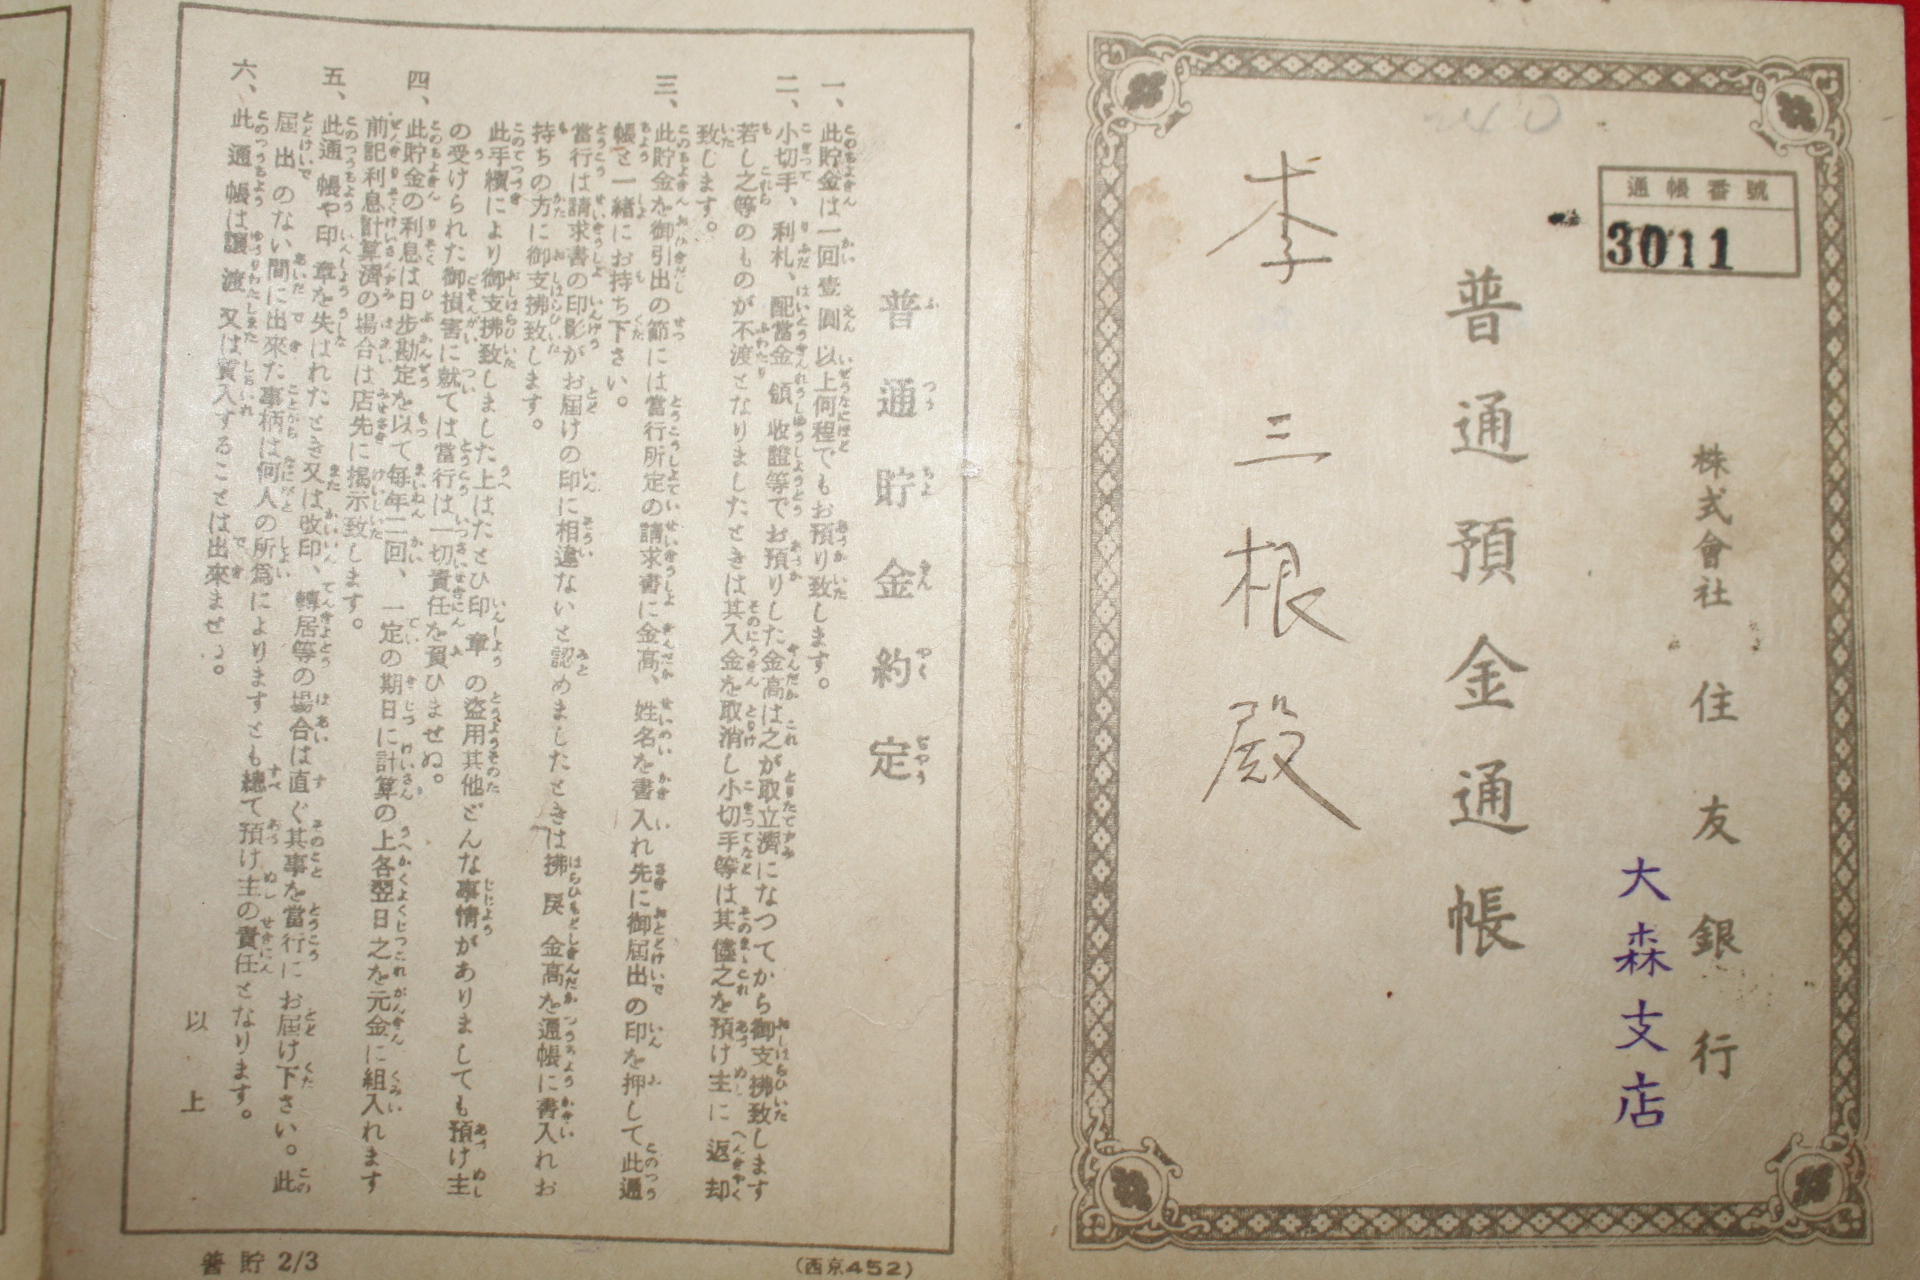 240
通帳番號
3011
株式會社 住友銀行
大森支店
普通預金通帳
李三根殿
普通貯金約定
一、此貯金は一回壹圓以上何程でもお預り致します。
二、小切手、利札、配當金領收證等でお預りした金高は之が取立濟になつてから御支拂致します
若し之等のものが不渡となりましたときは其入金を取消し小切手等は其儘之を預け主に返却
致します。
三、此貯金を御引出の節には當行所定の請求書に金高、姓名を書入れ先に御屆出の印を押して此通
帳と一緒にお持ち下さい。
當行は請求書の印影がお屆けの印に相違ないと認めましたときは拂戾金高を通帳に書入れお
持ちの方に御支拂致します。
此手續により御支拂致しました上はたとひ印章の盜用其他どんな事情がありましても預け主
の受けられた御損害に就ては當行は一切責任を負ひませぬ。
四、此貯金の利息は日步勘定を以て每年二回、一定の期日に計算の上各翌日之を元金に組入れます
前記利息計算濟の場合は店先に揭示致します。
五、此通帳や印章を失はれたとき又は改印、轉居等の場合は直ぐ其事を當行にお屆け下さい。此
屆出のない間に出來た事柄は何人の所爲によりますとも總て預け主の責任となります。
六、此通帳は讓渡又は質入することは出來ませぬ。
以上
普貯 2/3
(西京452)